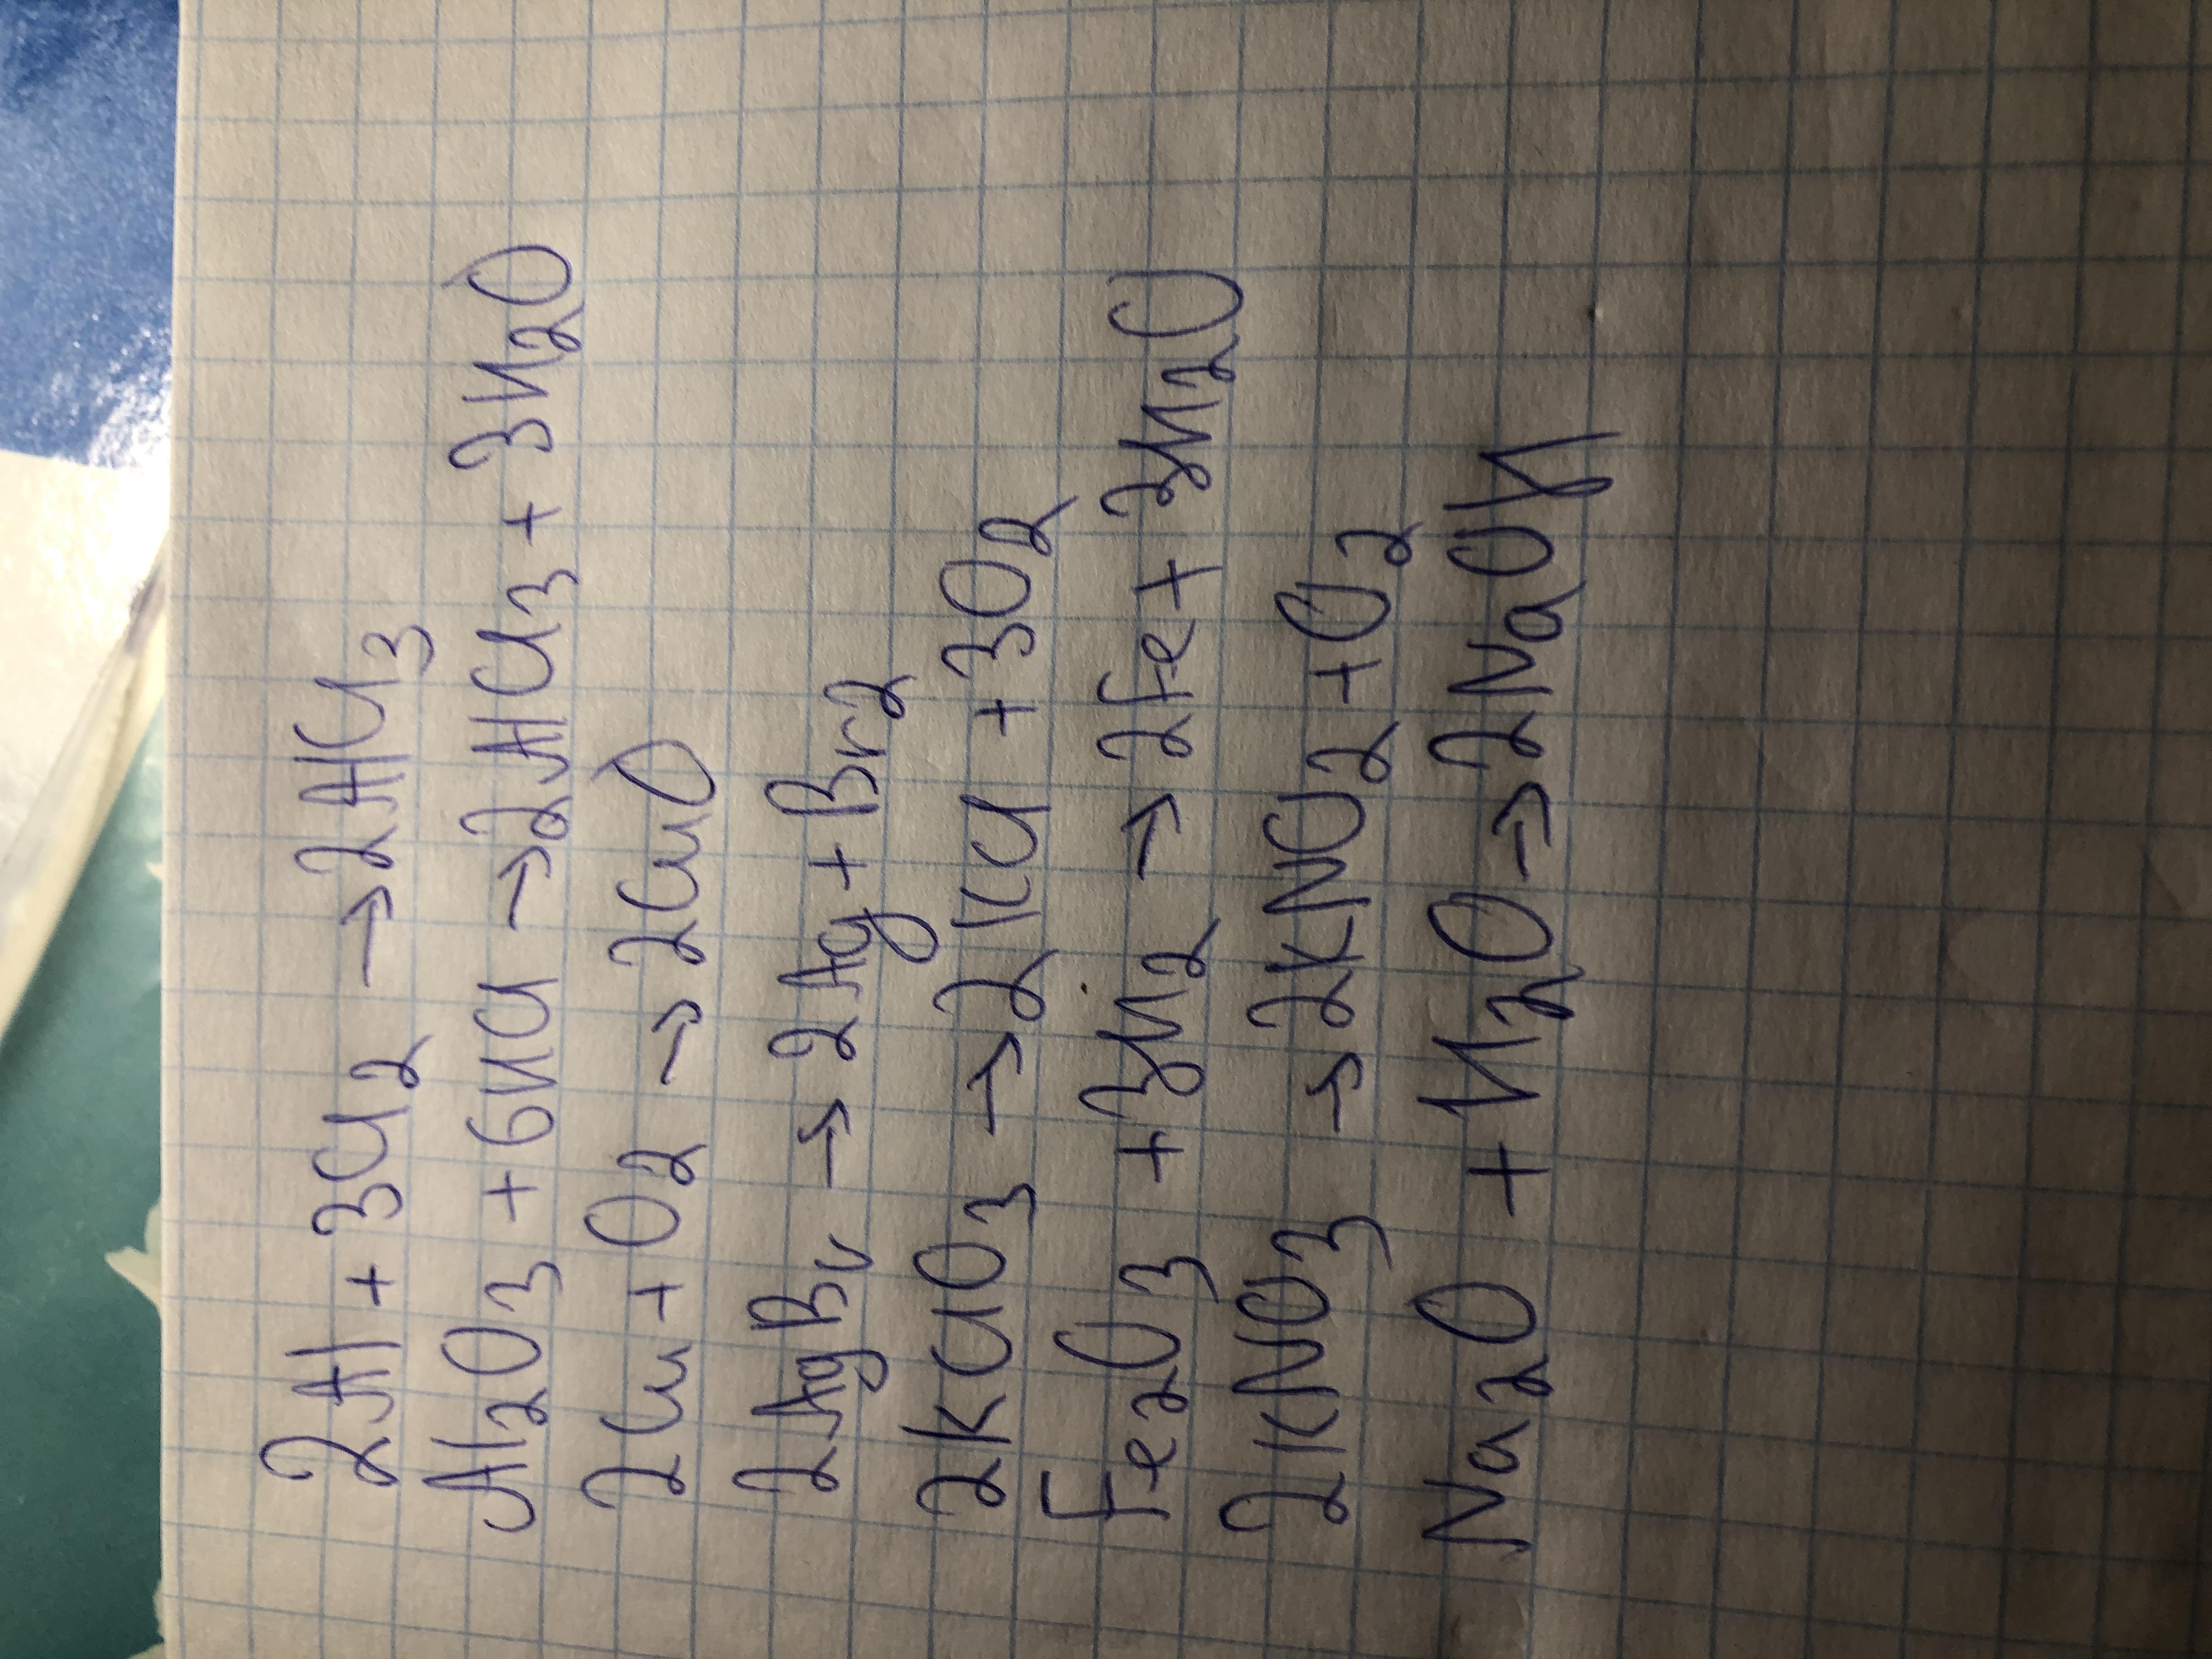 2Al + 3Cl2 → 2AlCl3
Al2O3 + 6HCl → 2AlCl3 + 3H2O
2Cu + O2 → 2CuO
2AgBr → 2Ag + Br2
2KClO3 → 2KCl + 3O2
Fe2O3 + 3H2 → 2Fe + 3H2O
2KNO3 → 2KNO2 + O2
Na2O + H2O → 2NaOH